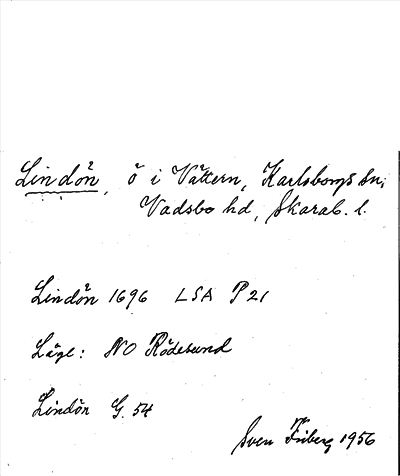 Lindön, ö i Vättern, Karlsborgs sn,
Vadsbo hd, Skarab. l.
Lindön 1696 LSA P21
Läge: NO Rödesund
Lindön G. 54
Sven Friberg 1956